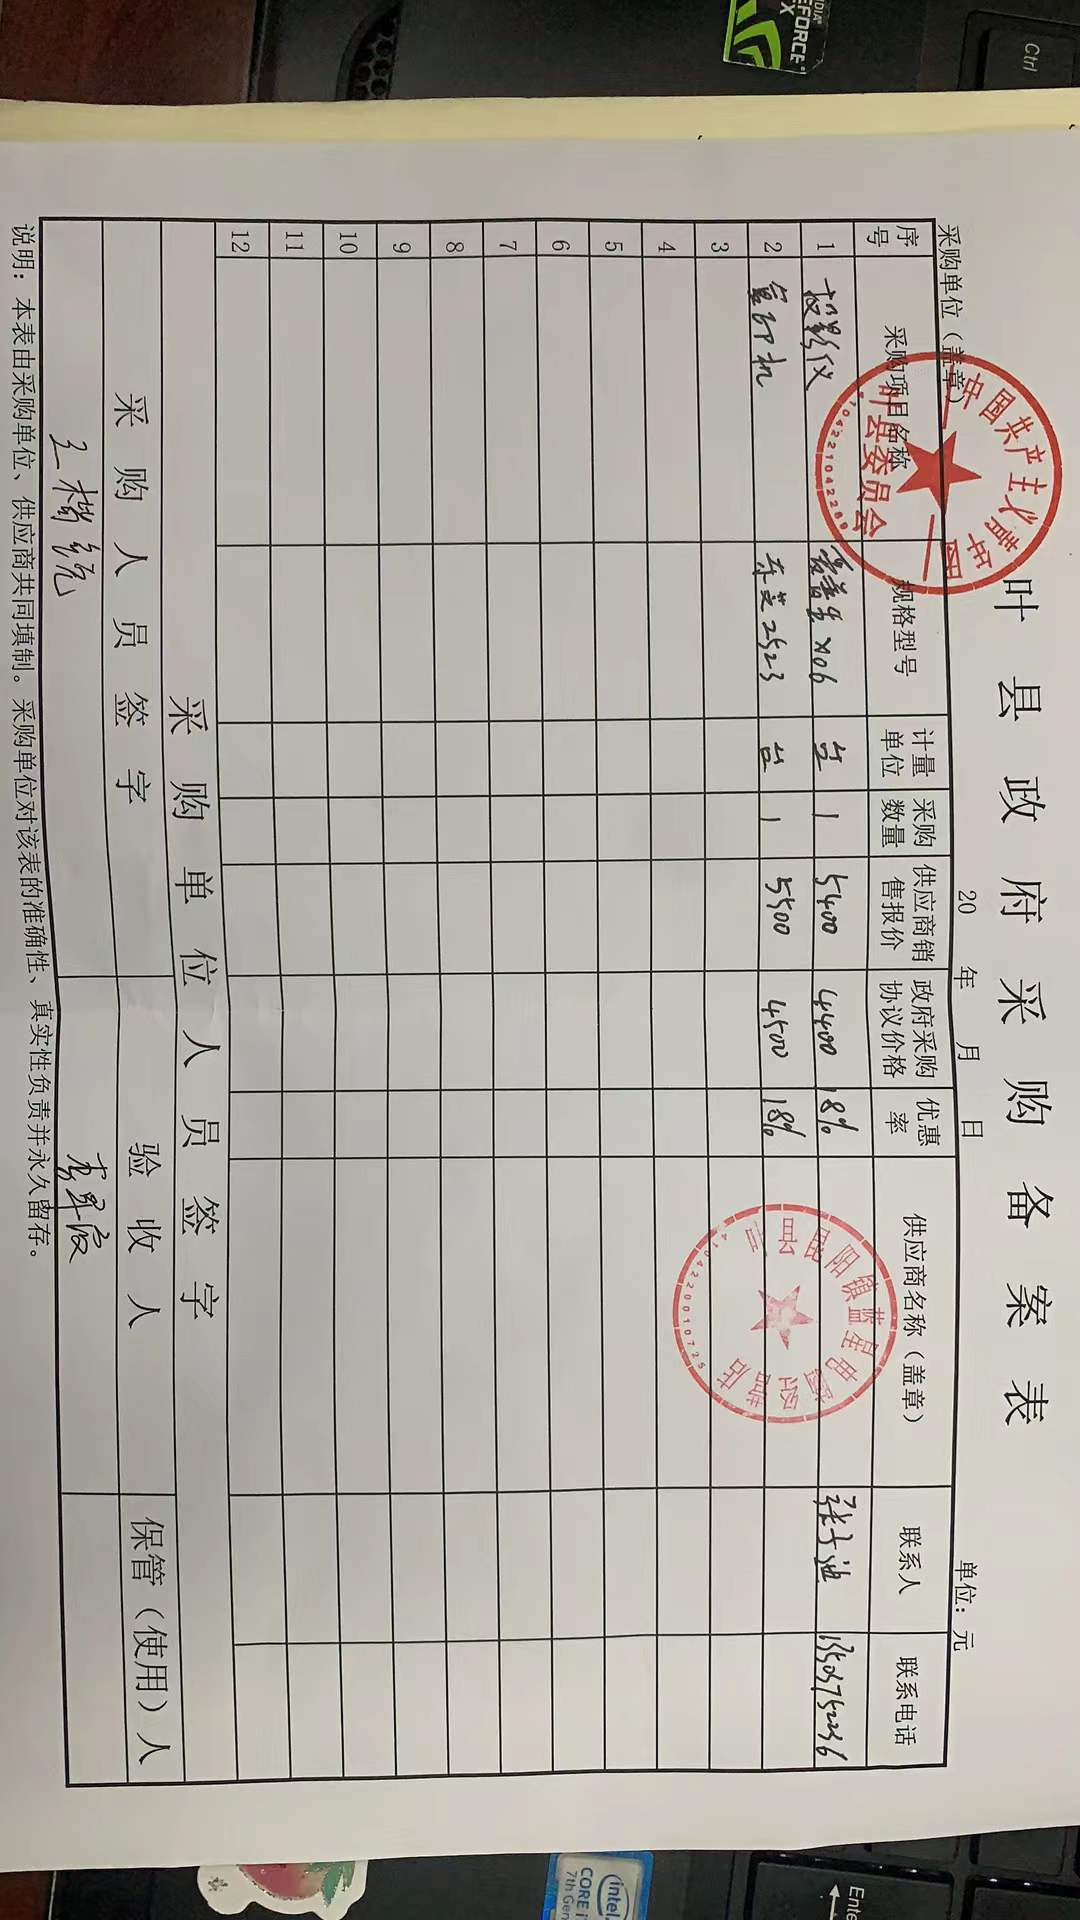 叶县政府采购备案表
采购单位（盖章） 20 年 月 日 单位：元
中国共产主义青年团
叶县委员会
序号 采购项目名称 规格型号 计量单位 采购数量 供应商销售报价 政府采购协议价格 优惠率 供应商名称（盖章） 联系人 联系电话
1 投影仪 X06 台 1 5400 4400 18%
2 复印机 东芝2523 台 1 5500 4500 18%
叶县昆阳镇蓝星电脑经营店
4104220010725
3
4
5
6
7
8
9
10
11
12
采购单位人员签字
采购人员签字 验收人 保管（使用）人
说明：本表由采购单位、供应商共同填制。采购单位对该表的准确性、真实性负责并永久留存。
GEFORCE
Ctrl
intel
CORE i
7th Gen
Ente